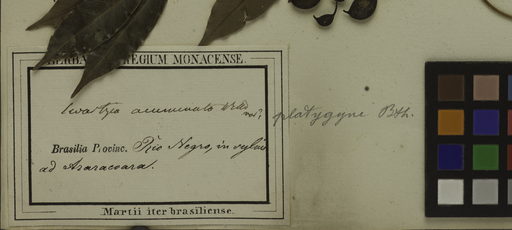 REGIUM MONACENSE.
Swartzia acuminata Willd
var? platygyne Bth.
Brasilia Provinc. Rio Negro, in sylvis
ad Araracoara.
Martii iter brasiliense.